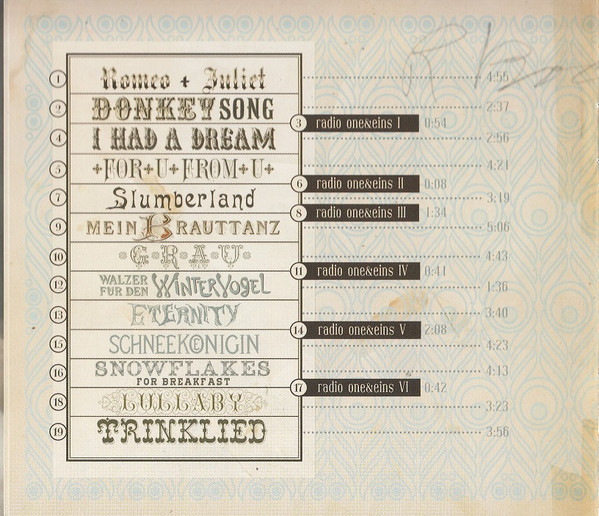 1 Romeo + Juliet 4:55
2 DONKEY SONG 2:37
3 radio one&eins I 0:54
4 I HAD A DREAM 2:56
5 +FOR+U+FROM+U+ 4:21
6 radio one&eins II 0:08
7 Slumberland 3:19
8 radio one&eins III 1:34
9 MEIN BRAUTTANZ 5:06
10 ·G·R·A·U· 4:43
11 radio one&eins IV 0:41
12 WALZER FÜR DEN WINTERVOGEL 1:36
13 ETERNITY 3:40
14 radio one&eins V 2:08
15 SCHNEEKÖNIGIN 4:23
16 SNOWFLAKES
FOR BREAKFAST 4:13
17 radio one&eins VI 0:42
18 LULLABY 3:23
19 TRINKLIED 3:56